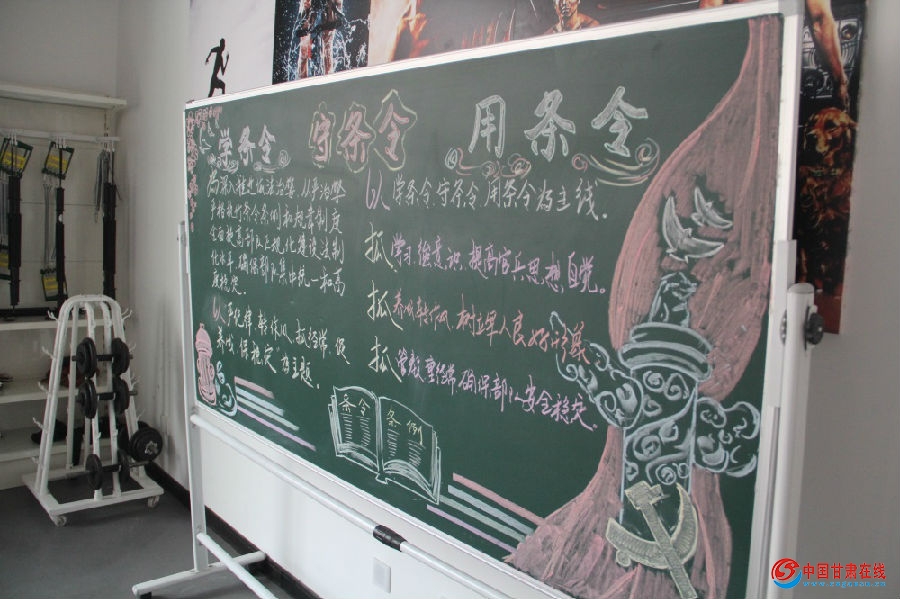 学条令 守条令 用条令
为深入推进依法治军、从严治军
严格执行条令条例和规章制度
全面提高部队正规化建设法制
化水平,确保部队集中统一和高
度稳定。
以"严纪律、转作风、抓经常、促
养成、保稳定"为主题。
以学条令、守条令、用条令为主线。
抓学习,强意识,提高官兵思想自觉。
抓养成,转作风,树立军人良好形象
抓管教,重经常,确保部队安全稳定。
条令
条例
中国甘肃在线